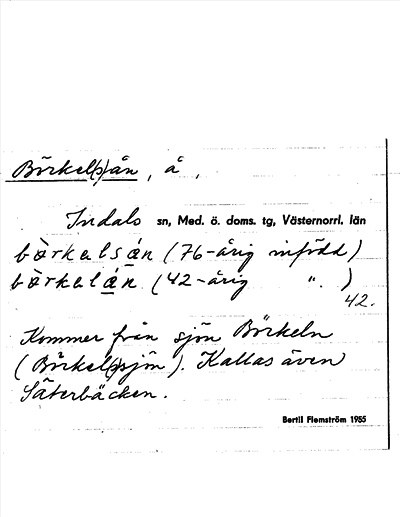 Börkel(s)ån, å,
Indals sn, Med. ö. doms. tg, Västernorrl. län
bö̀rkəlsạ́n (76-årig infödd)
bö̀rkəlạ́n (42-årig ".)
42.
Kommer från sjön Börkeln
(Börkel(s)sjön). Kallas även
Säterbäcken.
Bertil Flemström 1955